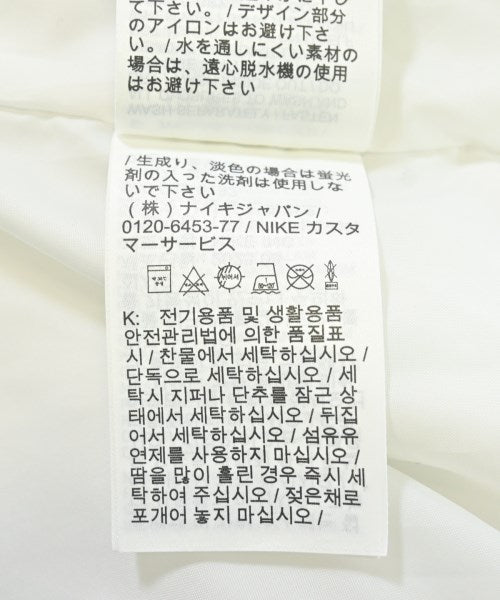 て下さい。 / デザイン部分
のアイロンはお避け下さ
い。 / 水を通しにくい素材の
場合は、遠心脱水機の使用
はお避け下さい
/ 生成り、淡色の場合は蛍光
剤の入った洗剤は使用しな
いで下さい
(株) ナイキジャパン /
0120-6453-77 / NIKE カスタ
マーサービス
K: 전기용품 및 생활용품
안전관리법에 의한 품질표
시 / 찬물에서 세탁하십시오 /
단독으로 세탁하십시오 / 세
탁시 지퍼나 단추를 잠근 상
태에서 세탁하십시오 / 뒤집
어서 세탁하십시오 / 섬유유
연제를 사용하지 마십시오 /
땀을 많이 흘린 경우 즉시 세
탁하여 주십시오 / 젖은채로
포개어 놓지 마십시오 /